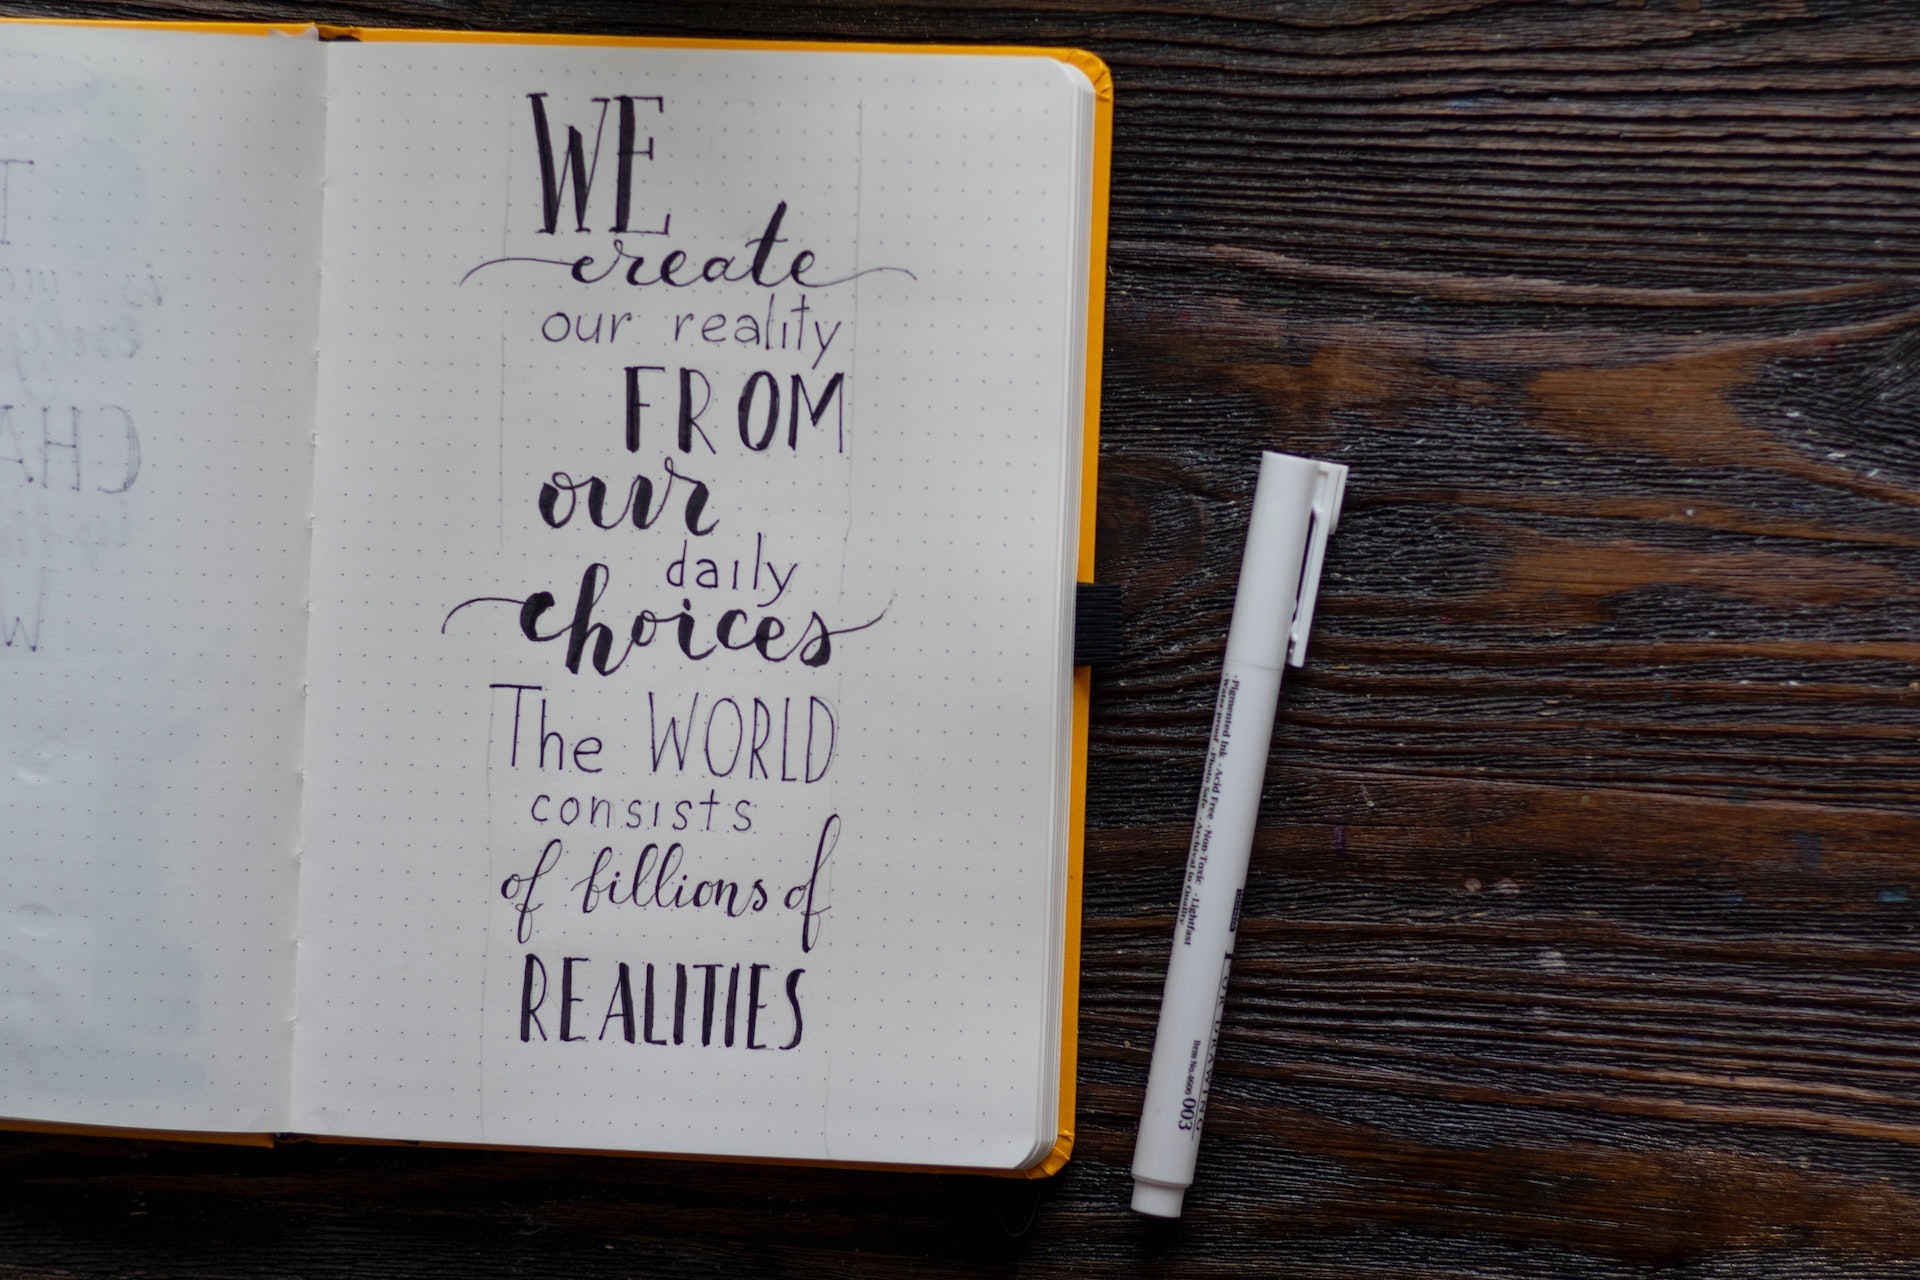 WE
create
our reality
FROM
our
daily
choices
The WORLD
consists
of billions of
REALITIES
·Pigmented Ink ·Acid Free ·Non Toxic ·Lightfast
·Water proof ·Photo Safe ·Archival in Quality
FOR DRAWING
Item No.4600 003